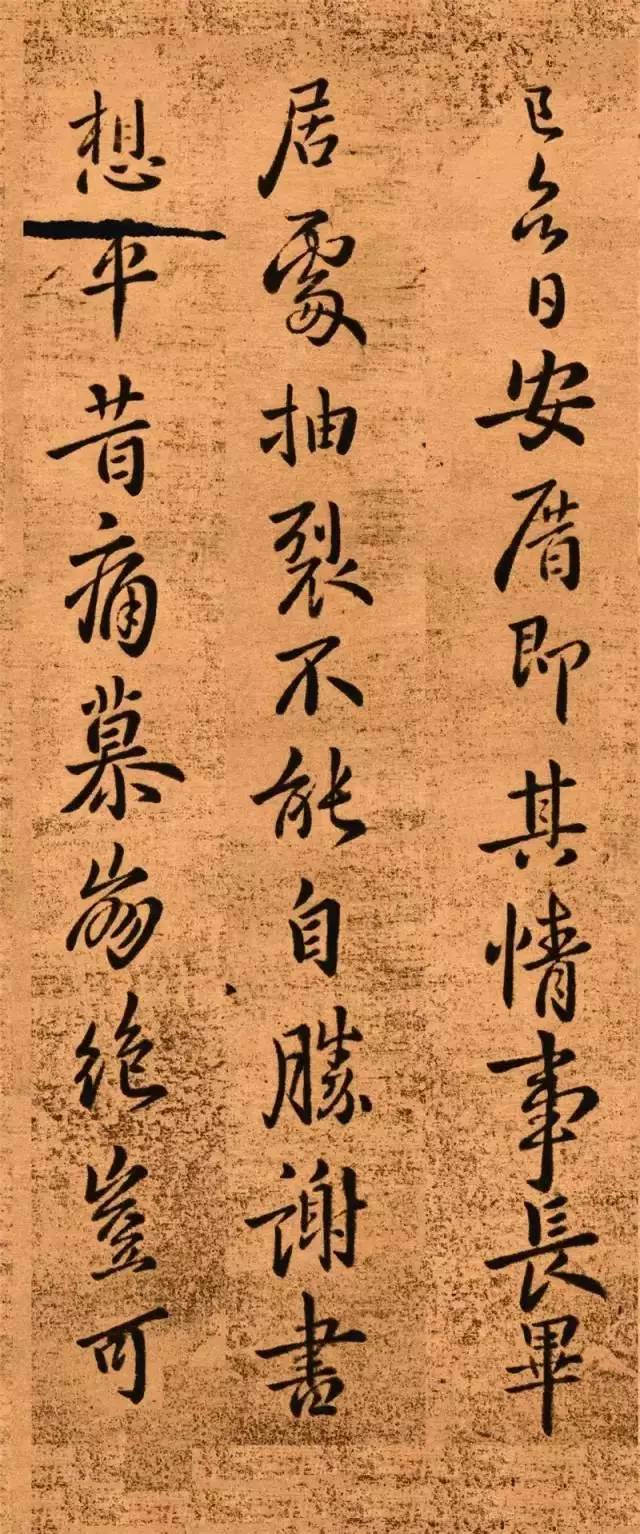 已日安厝即其情事長畢
居處抽裂不能自勝謝書
想平昔痛慕崩絕豈可